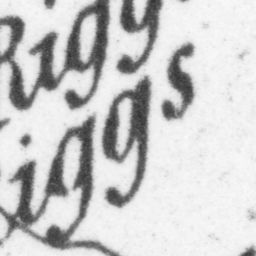 Rigg
iggs